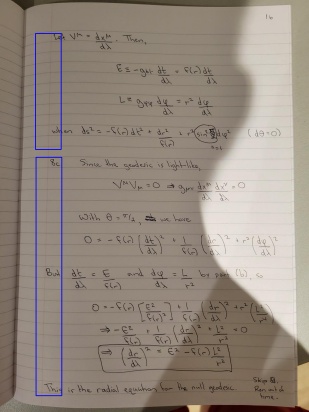 16
Let V^μ = dx^μ/dλ. Then,
E ≡ -g_tt dt/dλ = f(r) dt/dλ
L ≡ g_φφ dφ/dλ = r² dφ/dλ
when ds² = -f(r)dt² + dr²/f(r) + r² sin²θ dφ² (dθ=0)
8c Since the geodesic is light-like,
V^μ V_μ = 0 ⇒ g_μν dx^μ/dλ dx^ν/dλ = 0
With θ = π/2 we have
0 = -f(r) (dt/dλ)² + 1/f(r) (dr/dλ)² + r² (dφ/dλ)²
But dt/dλ = E/f(r) and dφ/dλ = L/r² by part (b), so
0 = -f(r) [E²/f(r)²] + 1/f(r) (dr/dλ)² + r² (L²/r⁴)
⇒ -E²/f(r) + 1/f(r) (dr/dλ)² + L²/r² = 0
⇒ (dr/dλ)² = E² - f(r) L²/r²
This is the radial equation for the null geodesic.
Skip
Ran out of
time.